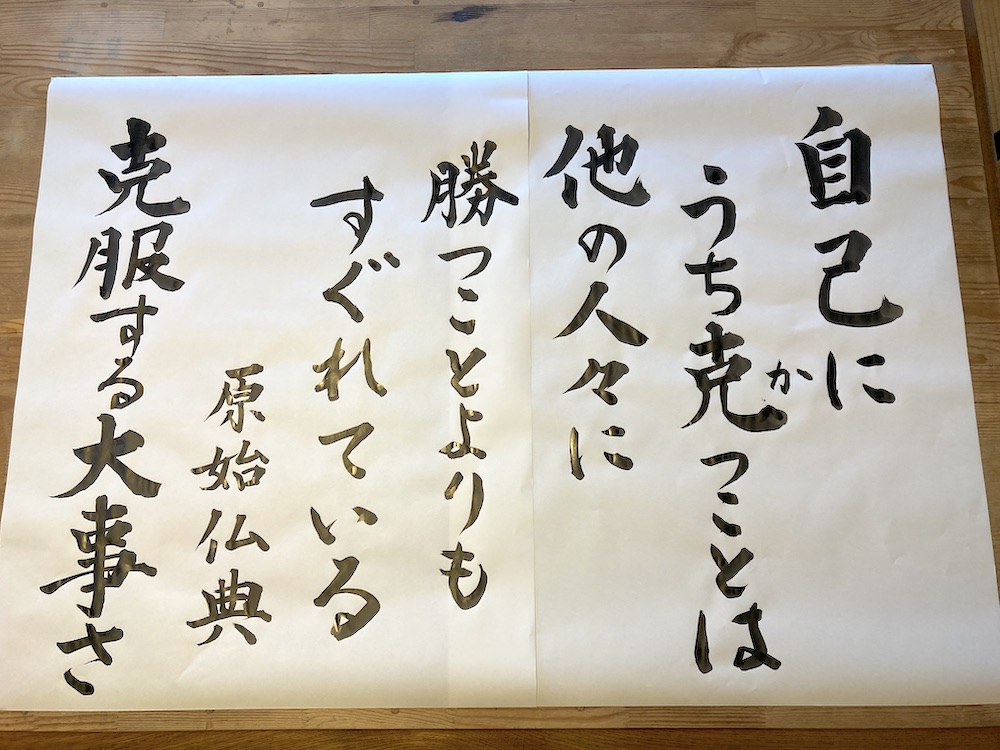 自己に
うち克つことは
か
他の人々に
勝つことよりも
すぐれている
原始仏典
克服する大事さ